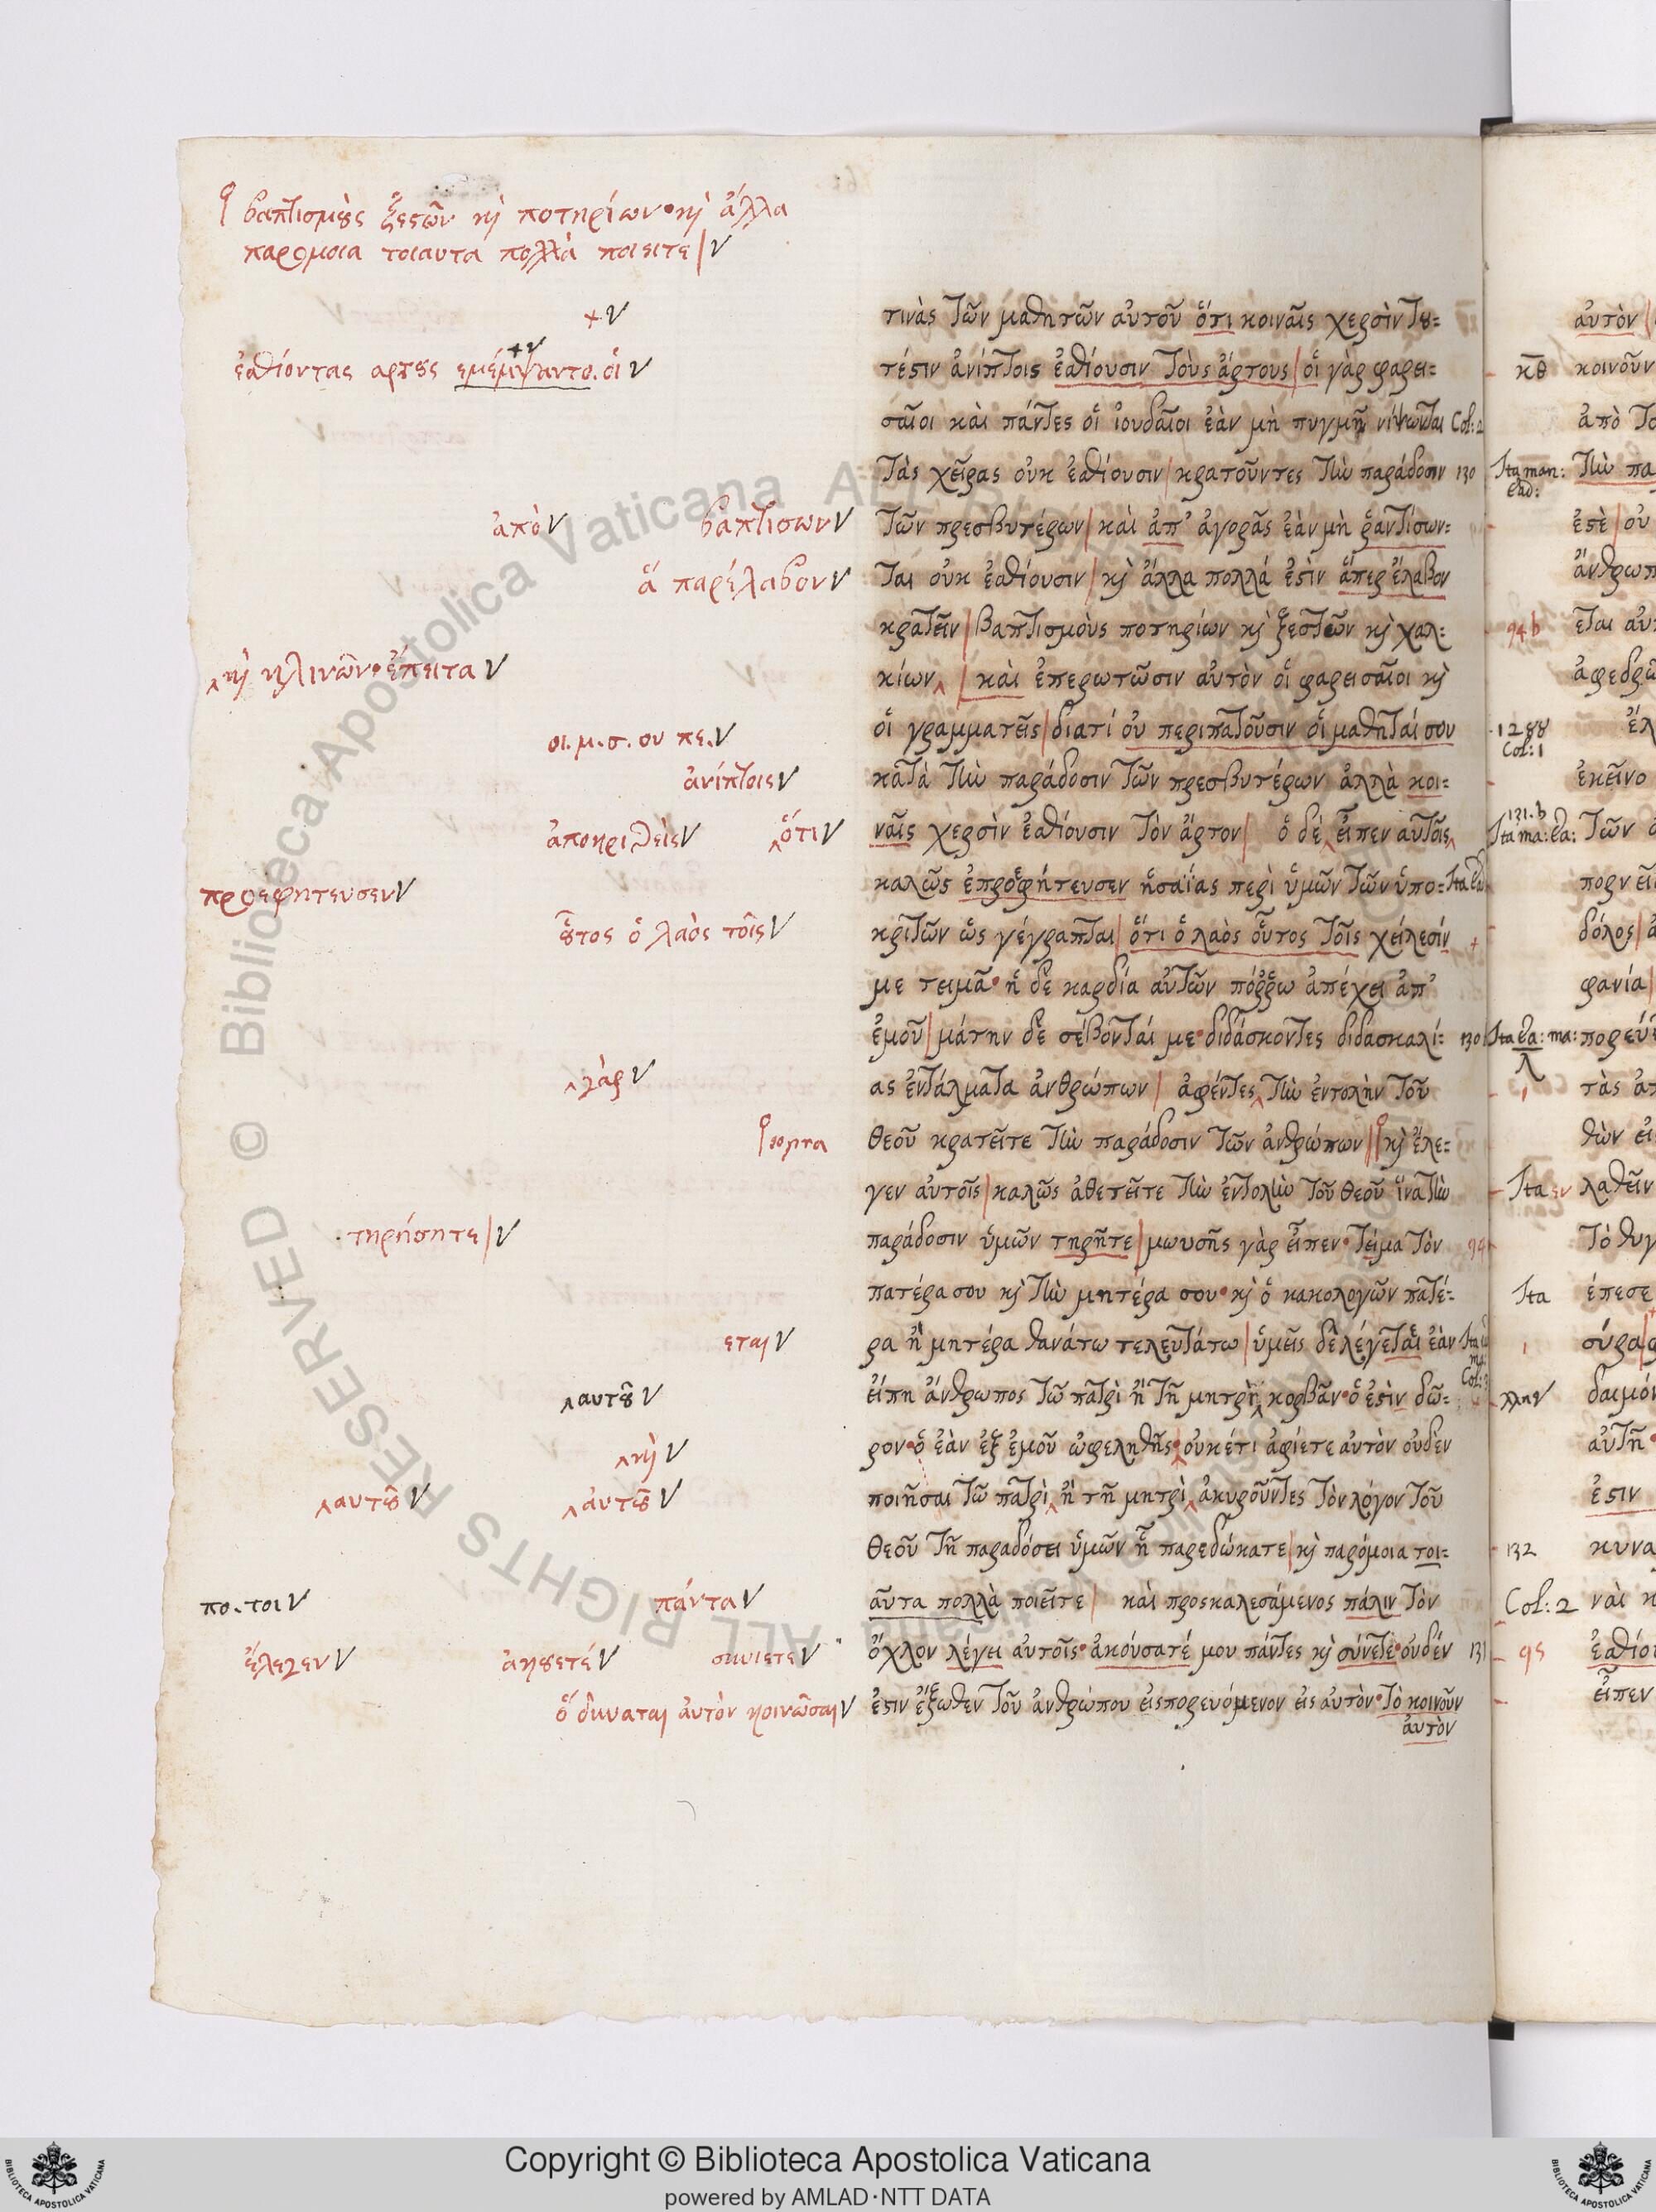 βαπτισμοὺς ξεστῶν κὶ ποτηρίων· κὶ ἄλλα
παρομοια τοιαυτα πολλὰ ποιειτε | V
+ V
ἐσθίοντας αρτους εμέμψαντο. οἱ V
+ V
ἀπὸ V βαπτισων V
ἅ παρέλαβον V
‸ κὶ κλινῶν· ἔπειτα V
οι. μ. σ. ου πε. V
ἀνίπτοις V
ἀποκριθεὶς V ‸ ὅτι V
προεφητευσεν V
οὗτος ὁ λαὸς τοῖς V
‸ γὰρ V
supra
τηρήσητε | V
εται V
‸ αυτοῦ V
‸ κὶ V
‸ αυτοῦ V ‸ ἀυτοῦ V
πο. τοι V πάντα V
ἔλεγεν V ἀκουετέ V συνιετε V
ὅ δύναται αὐτὸν κοινῶσαι V
τινὰς τῶν μαθητῶν αὐτοῦ ὅτι κοιναῖς χερσὶν του=
τέστιν ἀνίπτοις ἐσθίουσιν τοὺς ἄρτους | οἱ γὰρ φαρει=
σαῖοι καὶ πάντες οἱ ἰουδαῖοι ἐὰν μὴ πυγμῇ νίψωνται Col: 2
τὰς χεῖρας οὐκ ἐσθίουσιν | κρατοῦντες τὴν παράδοσιν 130
τῶν πρεσβυτέρων | καὶ ἀπ’ ἀγορᾶς ἐὰν μὴ ῥαντίσων=
ται οὐκ ἐσθίουσιν | κὶ ἄλλα πολλά ἐστὶν ἅπερ ἔλαβον
κρατεῖν | βαπτισμοὺς ποτηρίων κὶ ξεστῶν κὶ χαλ=
κίων ‸ | καὶ ἐπερωτῶσιν αὐτὸν οἱ φαρεισαῖοι κὶ
οἱ γραμματεῖς | διατί οὐ περιπατοῦσιν οἱ μαθηταί σου
κατὰ τὴν παράδοσιν τῶν πρεσβυτέρων ἀλλὰ κοι=
ναῖς χερσὶν ἐσθίουσιν τὸν ἄρτον | ὁ δὲ ‸ εἶπεν αὐτοῖς ‸
καλῶς ἐπροφήτευσεν ἡσαΐας περὶ ὑμῶν τῶν ὑπο=
κριτῶν ὡς γέγραπται | ὅτι ὁ λαὸς οὗτος τοῖς χείλεσίν
με τειμᾶ· ἡ δὲ καρδία αὐτῶν πόῤῥω ἀπέχει ἀπ’
ἐμοῦ | μάτην δὲ σέβονταί με· διδάσκοντες διδασκαλί= 130
ας ἐντάλματα ἀνθρώπων | ἀφέντες ‸ τὴν ἐντολὴν τοῦ
θεοῦ κρατεῖτε τὴν παράδοσιν τῶν ἀνθρώπων | κὶ ἔλε=
γεν αὐτοῖς | καλῶς ἀθετεῖτε τὴν ἐντολὴν τοῦ θεοῦ ἵνα τὴν
παράδοσιν ὑμῶν τηρῆτε | μωυσῆς γὰρ εἶπεν· τείμα τὸν
πατέρα σου κὶ τὴν μητέρα σου· κὶ ὁ κακολογῶν πατέ=
ρα ἢ μητέρα θανάτω τελευτάτω | ὑμεῖς δὲ λέγεται ἐὰν
εἴπη ἄνθρωπος τῶ πατρὶ ἢ τῆ μητρὶ ‸ κορβᾶν· ὅ ἐστὶν δῶ=
ρον· ὅ ἐὰν ἐξ ἐμοῦ ὠφεληθῆς· ‸ οὐκέτι ἀφίετε αὐτὸν οὐδὲν
ποιῆσαι τῶ πατρὶ ‸ ἢ τῆ μητρὶ ‸ ἀκυροῦντες τὸν λόγον τοῦ
θεοῦ τῆ παραδόσει ὑμῶν ἧ παρεδώκατε | κὶ παρόμοια τοι=
αῦτα πολλὰ ποιεῖτε | καὶ προσκαλεσάμενος πάλιν τὸν
ὄχλον λέγει αὐτοῖς· ἀκούσατέ μου πάντες κὶ σύνετε· οὐδέν 131
ἐστιν ἔξωθεν τοῦ ἀνθρώπου εἰσπορευόμενον εἰς αὐτὸν· τὸ κοινοῦν
αὐτὸν
αὐτὸν
κθ κοινοῦν
ἀπὸ
Ita man: τὴν πα
ead:
ἐστὲ | οὐ
ἄνθρωπ
94 b εται αὐ
ἀφεδρῶ
1288
Col: 1
ἐκεῖνο
131. b
Ita ma: ea: τῶν
δόλος |
φανία |
Ita ea: ma: πορεύ
τὰς ἀπ
θὼν εἰ
Ita λαθεῖν
Τὸ θυγ
Ita έπεσε
σύρα |
δαιμόν
αὐτῆ
ἐστιν
132 κυνα
Col: 2 ναὶ κ
95 ἐσθίο
εἶπεν
Copyright © Biblioteca Apostolica Vaticana
powered by AMLAD·NTT DATA
© Biblioteca Apostolica Vaticana ALL RIGHTS RESERVED
BIBLIOTECA APOSTOLICA VATICANA
BIBLIOTECA APOSTOLICA VATICANA